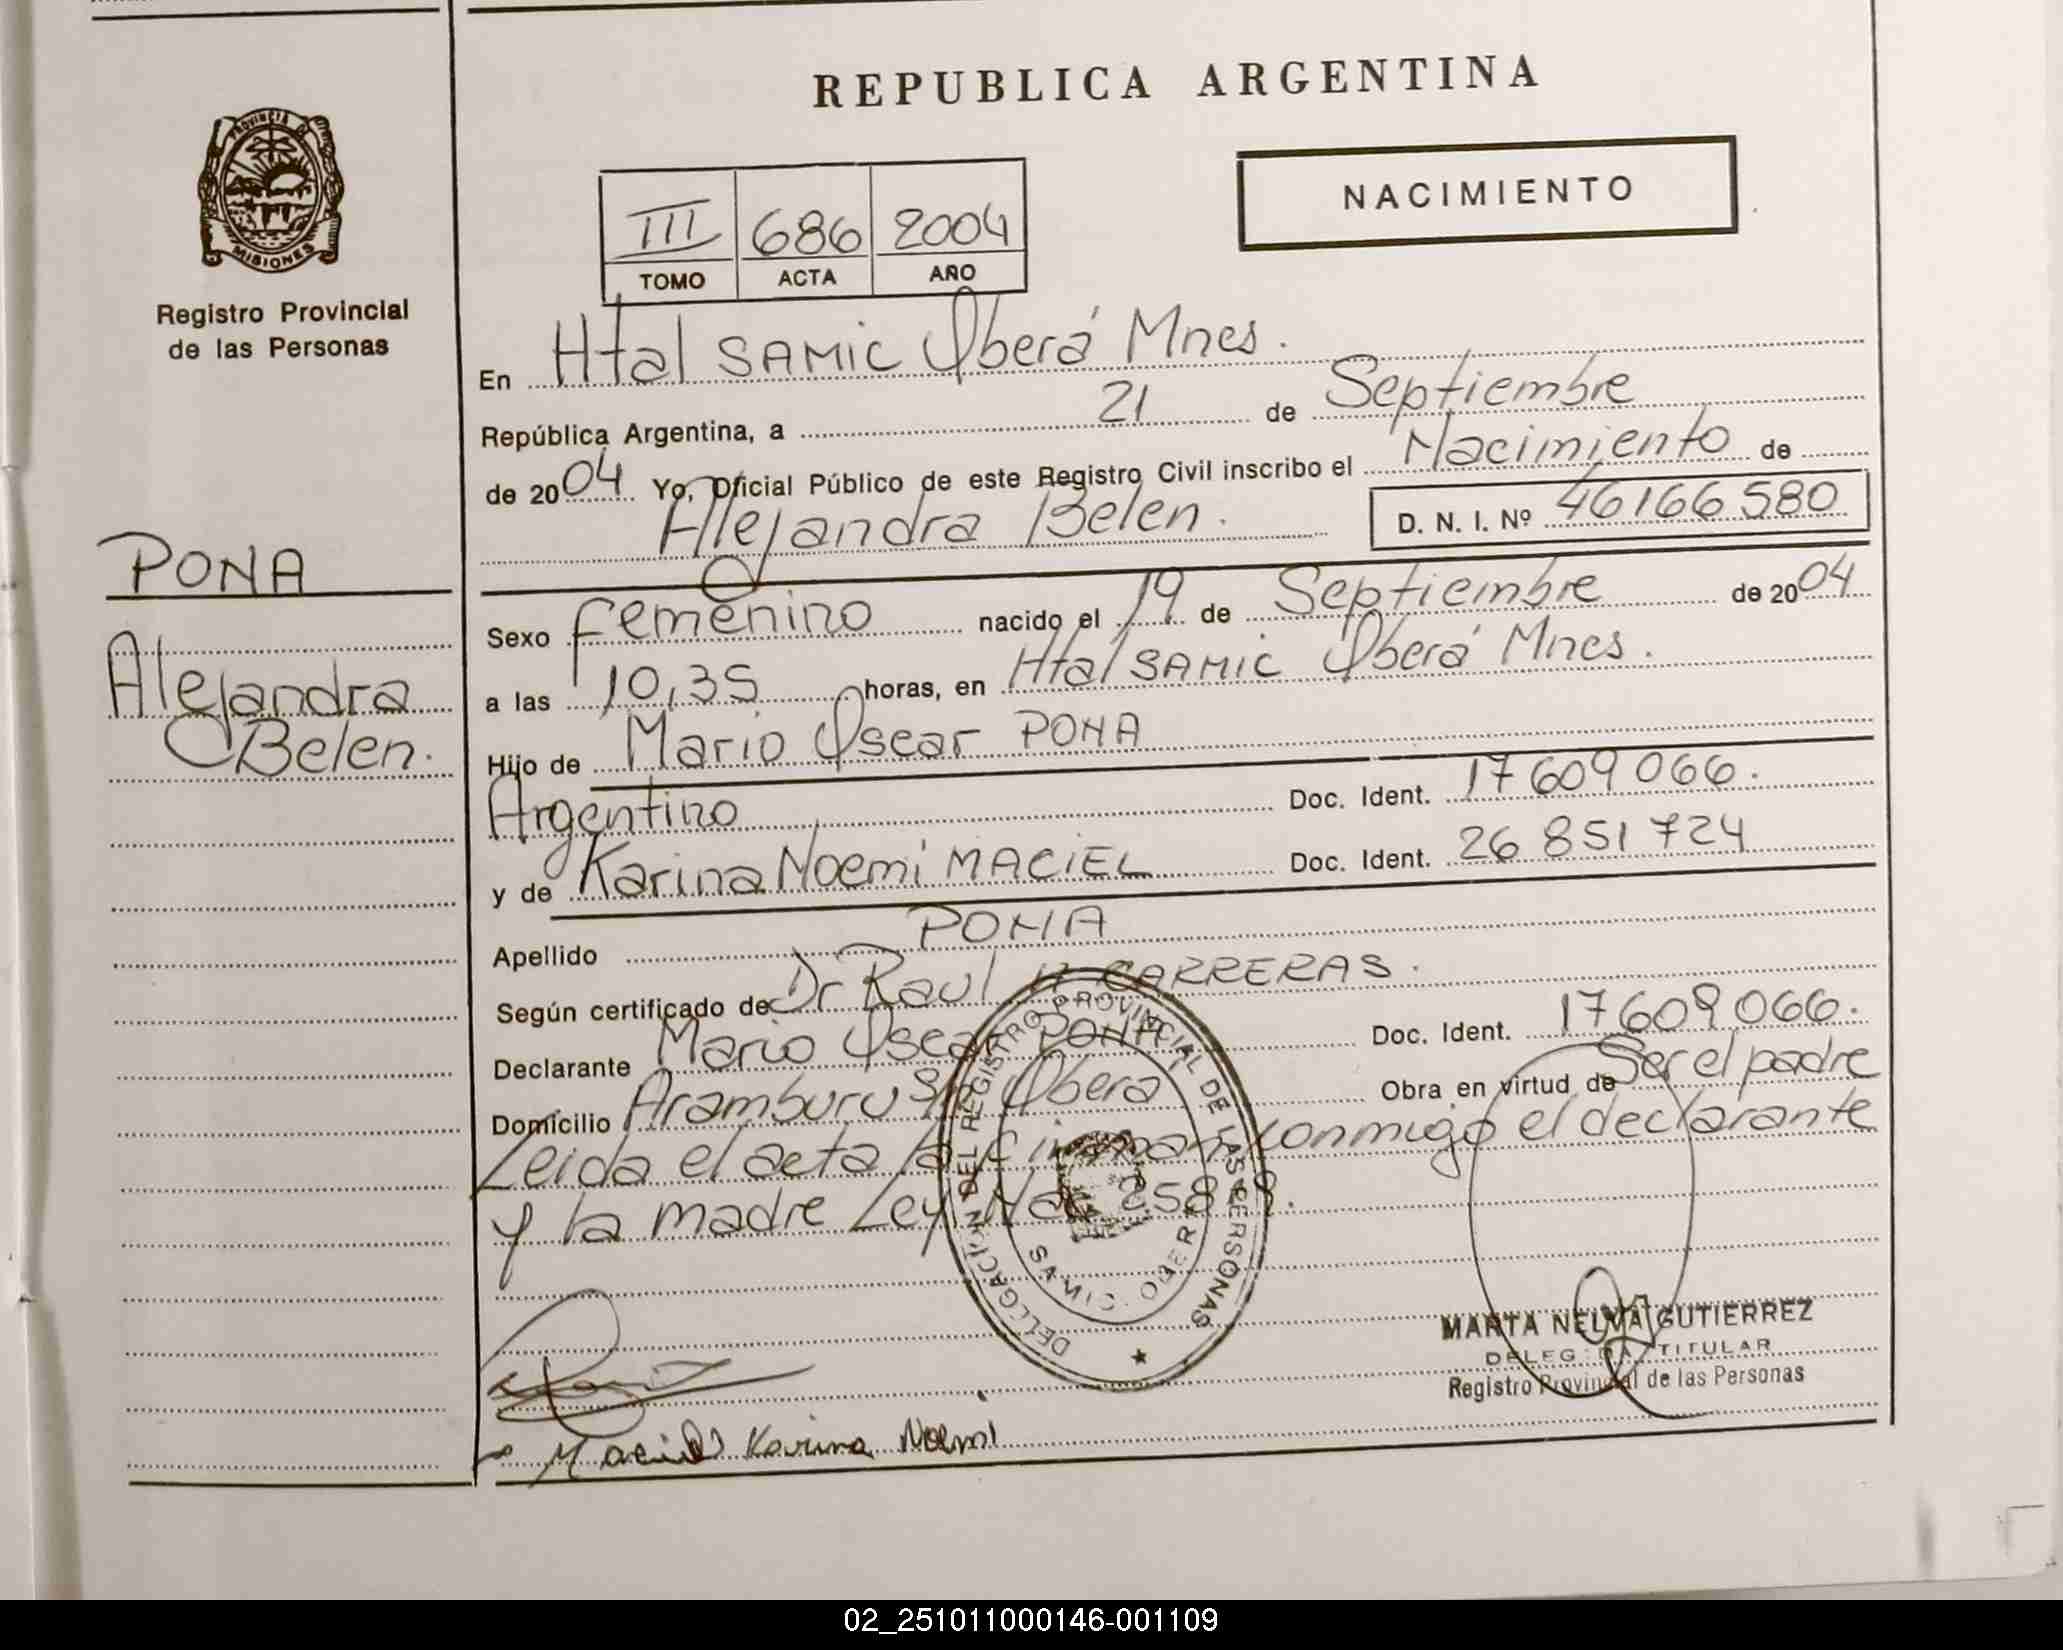 REPUBLICA ARGENTINA
PROVINCIA DE
MISIONES
Registro Provincial
de las Personas
III 686 2004
TOMO ACTA AÑO
NACIMIENTO
En Htal SAMIC Oberá Mnes.
República Argentina, a 21 de Septiembre
de 2004 Yo, Oficial Público de este Registro Civil inscribo el Nacimiento de
Alejandra Belen. D. N. I. Nº 46166580
PONA
Alejandra
Belen.
Sexo femenino nacido el 19 de Septiembre de 2004
a las 10,35 horas, en Htal SAMIC Oberá Mnes.
Hijo de Mario Oscar PONA
Argentino Doc. Ident. 17609066.
y de Karina Noemi MACIEL Doc. Ident. 26 851 724
Apellido PONA
Según certificado de Dr Raul H CARRERAS.
Declarante Mario Oscar PONA Doc. Ident. 17609066.
Domicilio Aramburu S/n Obera Obra en virtud de Ser el padre
Leida el acta la firman conmigo el declarante
y la madre Ley Nac 258
DELEGACION DEL REGISTRO PROVINCIAL DE LAS PERSONAS
MARTA NELVA GUTIERREZ
DELEGADA TITULAR
Registro Provincial de las Personas
Maciel Karina Noemi
02_251011000146-001109